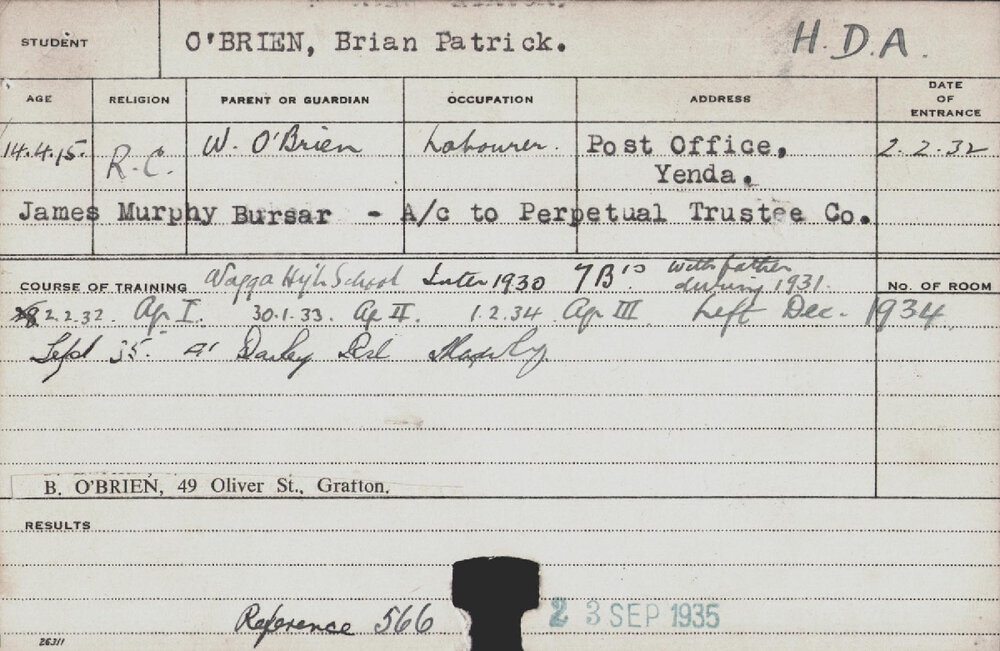 STUDENT O'BRIEN, Brian Patrick. H.D.A.
AGE RELIGION PARENT OR GUARDIAN OCCUPATION ADDRESS DATE OF ENTRANCE
14.4.15. R.C. W. O'Brien Labourer. Post Office, 2.2.32
Yenda.
James Murphy Bursar - A/c to Perpetual Trustee Co.
COURSE OF TRAINING Wagga High School Inter 1930 7B's with father during 1931. No. OF ROOM
2.2.32. Ag I. 30.1.33. Ag II. 1.2.34 Ag III Left Dec. 1934.
Sept 35. at
B. O'BRIEN, 49 Oliver St., Grafton.
RESULTS
Reference 566 23 SEP 1935
26311